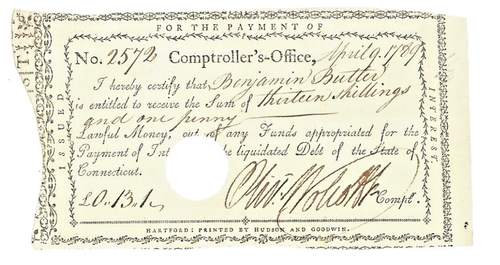 FOR THE PAYMENT OF
No. 2572 Comptroller's-Office, April 9 1789
I hereby certify that Benjamin Butler
is entitled to receive the Sum of thirteen shillings
and one penny
Lawful Money, out of any Funds appropriated for the
Payment of Int he liquidated Debt of the State of
Connecticut.
£0.. 13.. 1 Olivr. Wolcott Jr Comptr.
ISSUED
INTEREST
HARTFORD: PRINTED BY HUDSON AND GOODWIN.